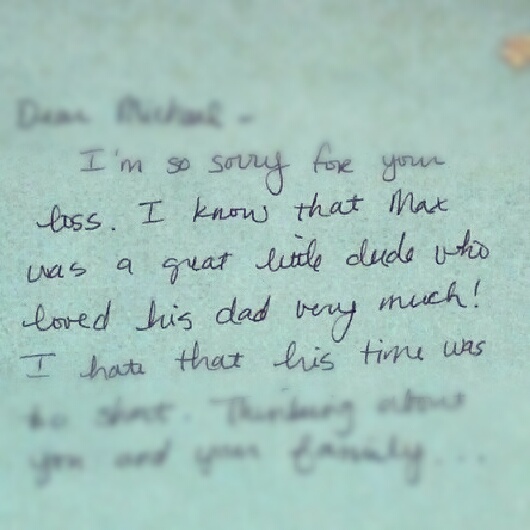 Dear Michael -
I'm so sorry for your
loss. I know that Max
was a great little dude who
loved his dad very much!
I hate that his time was
so short. Thinking about
you and your family...